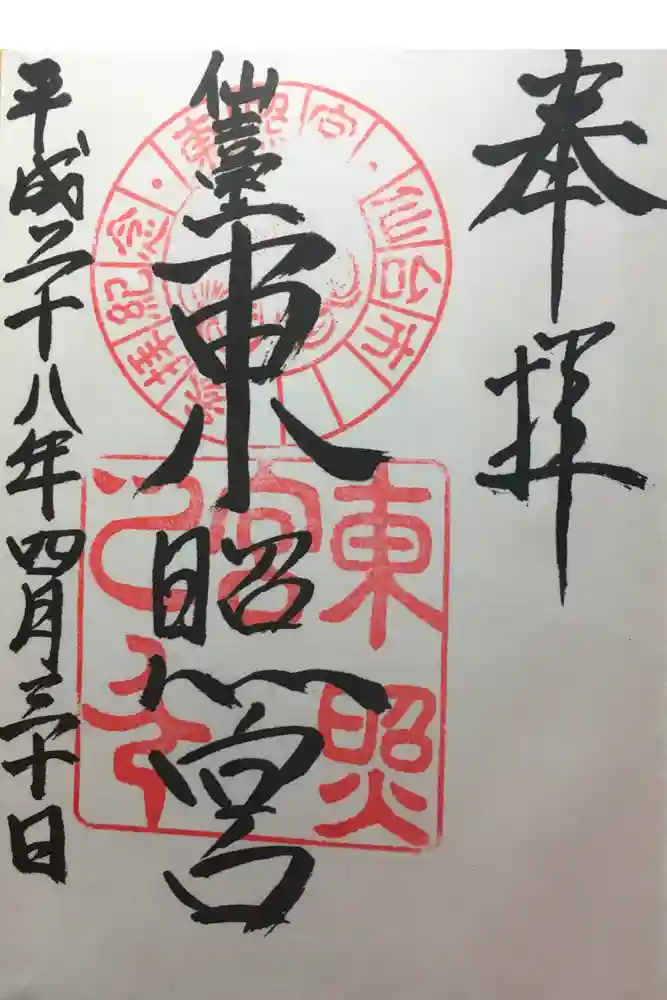 奉拝
仙臺東照宮
平成二十八年四月三十日
東照宮
仙台市
参拝記念
東照宮之印